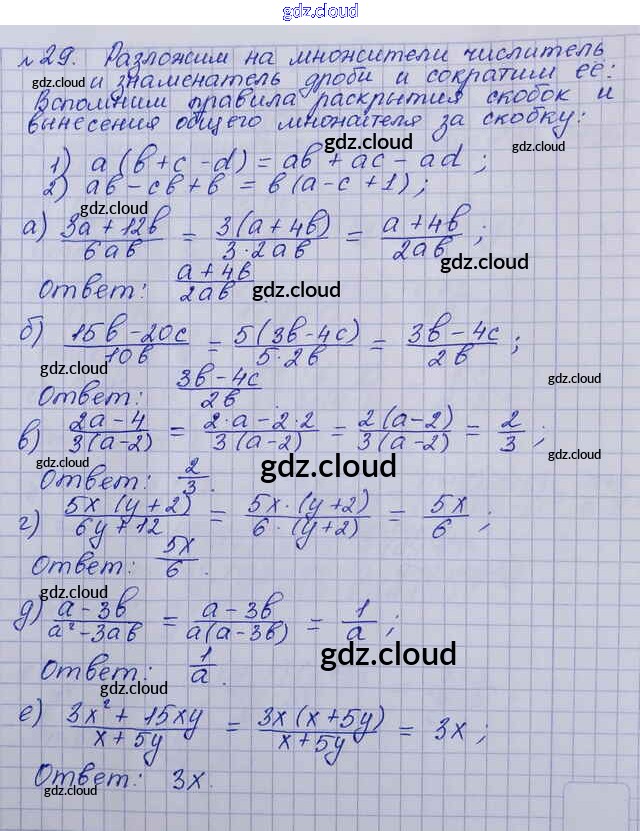 gdz.cloud
№29. Разложим на множители числитель
и знаменатель дроби и сократим её:
Вспомним правила раскрытия скобок и
вынесения общего множителя за скобку:
1) a(b+c-d) = ab + ac - ad;
2) ab - cb + b = b(a-c+1);
а) (3a + 12b)/(6ab) = (3(a+4b))/(3·2ab) = (a+4b)/(2ab);
Ответ: (a+4b)/(2ab)
б) (15b-20c)/(10b) = (5(3b-4c))/(5·2b) = (3b-4c)/(2b);
Ответ: (3b-4c)/(2b)
в) (2a-4)/(3(a-2)) = (2·a-2·2)/(3(a-2)) = (2(a-2))/(3(a-2)) = 2/3;
Ответ: 2/3.
г) (5x(y+2))/(6y+12) = (5x·(y+2))/(6·(y+2)) = 5x/6;
Ответ: 5x/6.
д) (a-3b)/(a²-3ab) = (a-3b)/(a(a-3b)) = 1/a;
Ответ: 1/a.
е) (3x²+15xy)/(x+5y) = (3x(x+5y))/(x+5y) = 3x;
Ответ: 3x.